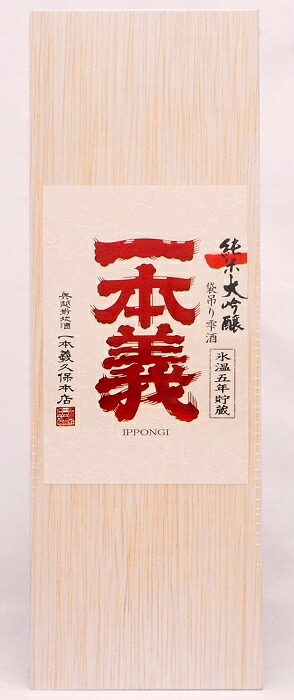 純米大吟醸
袋吊り雫酒
氷温五年貯蔵
一本義
IPPONGI
奥越前地酒
一本義久保本店